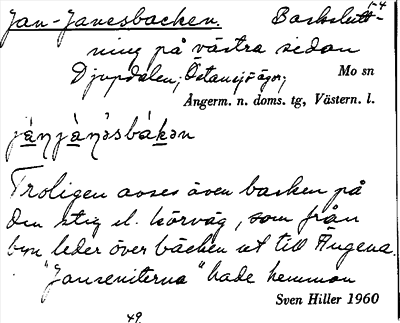 Jan-Janesbacken. Backslutt-
ning på västra sidan
Djupdalen; Östansjögn; Mo sn
Ångerm. n. doms. tg, Västern. l.
Troligen avses även backen på
den stig el. körväg, som från
byn leder över bäcken ut till Ängena.
"Janseniterna" hade hemman
Sven Hiller 1960
49